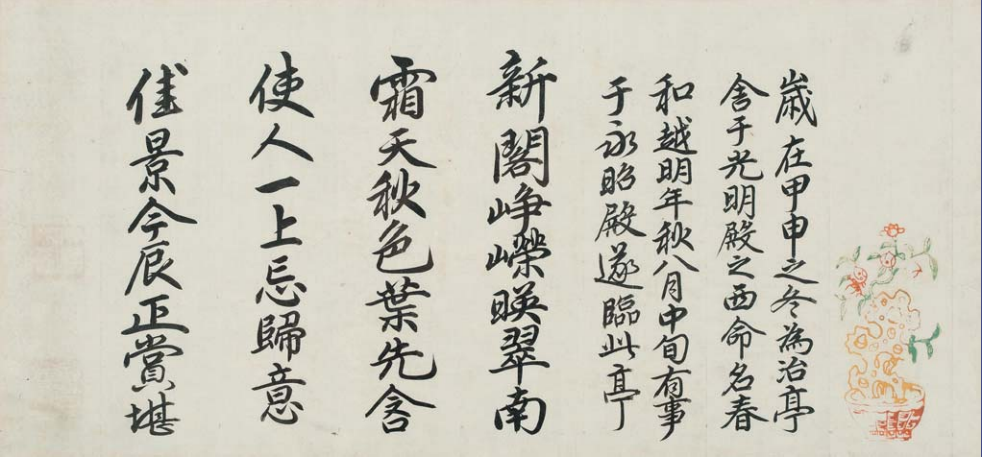 歲在甲申之冬為治亭
舍于光明殿之西命名春
和越明年秋八月中旬有事
于永昭殿遂臨此亭
新閣崢嶸暎翠南
霜天秋色葉先含
使人一上忘歸意
佳景今辰正賞堪